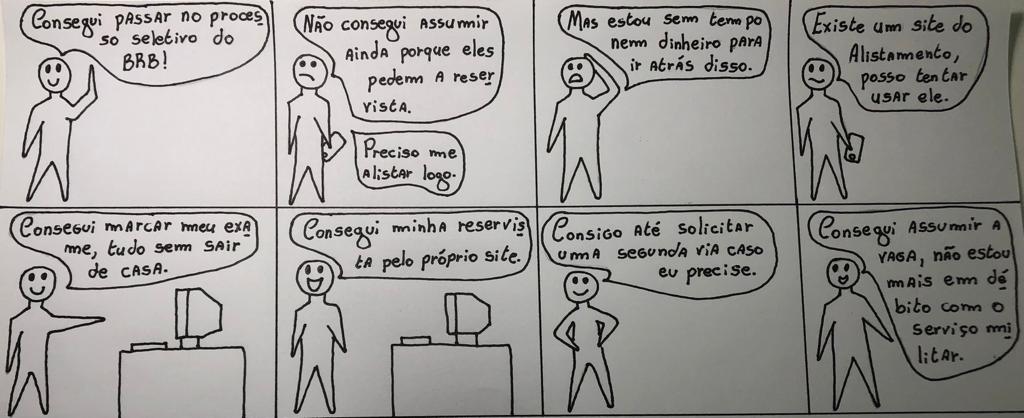 Consegui passar no proces
so seletivo do
BRB!
Não consegui assumir
ainda porque eles
pedem a reser
vista.
Preciso me
alistar logo.
Mas estou sem tempo
nem dinheiro para
ir atrás disso.
Existe um site do
Alistamento,
posso tentar
usar ele.
Consegui marcar meu exa
me, tudo sem sair
de casa.
Consegui minha reservis
ta pelo próprio site.
Consigo até solicitar
uma segunda via caso
eu precise.
Consegui assumir a
vaga, não estou
mais em dé
bito com o
serviço mi
litar.